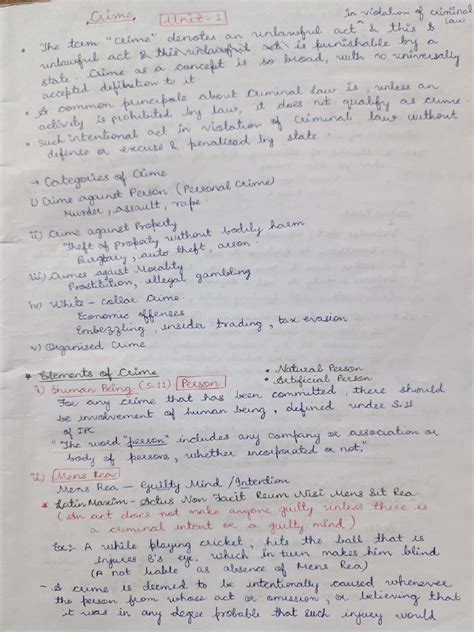 Crime Unit-1
in violation of criminal law
• The term "crime" denotes an unlawful act ^ & this
unlawful act & this unlawful act is punishable by a
state. Crime as a concept is so broad, with no universally
accepted defibution to it.
• A common principole about Criminal Law is, unless an
activity is prohibited by law, it does not qualify as crime
• such intentional act in violation of criminal law without
defense or excuse & penalised by state.
→ Categories of Crime
i) Crime against Person (Personal Crime)
Murder, assault, rape.
ii) Crime against Property
Theft of Property without bodily harm
Burglary, auto theft, arson.
iii) Crimes against Morality
Prostitution, illegal gambling
iv) White-collar Crime:
Economic offenses
Embezzling, insider trading, tax evasion
v) Organised Crime
* Elements of Crime
• Natural Person
• Artificial Person
i) Human Being (S.11) Person
For any crime that has been committed, there should
be involvement of human being, defined under S.11
of IPC
"The word 'person' includes any company or association or
body of persons, whether incorporated or not."
ii) Mens Rea
Mens Rea — Guilty Mind / Intention
* Latin Maxim - Actus Non Facit Reum Nisi Mens Sit Rea
(An act does not make anyone guilty unless there is
a criminal intent or a guilty mind)
Ex:- A while playing cricket, hits the ball that is
injures B's eye. which in turn makes him blind
(A not liable as absence of Mens Rea)
- A crime is deemed to be intentionally caused whenever
the person from whose act or omission, or believing that
it was in any degree probable that such injury would